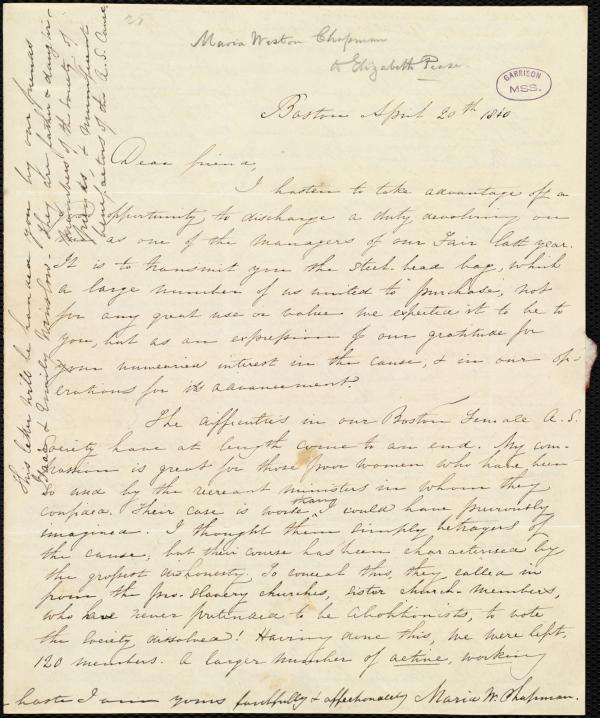 28
Maria Weston Chapman
to Elizabeth Pease.
GARRISON
MSS.
Boston April 20th 1840
Dear friend,
I hasten to take advantage of a
opportunity to discharge a duty devolving on
me as one of the managers of our Fair last year.
It is to transmit you the steel-bead bag, which
a large number of us united to purchase, not
for any great use or value we expected it to be to
you, but as an expression of our gratitude for
your unwearied interest in the cause, & in our op-
erations for its advancement.
The difficulties in our Boston Female A. S.
Society have at length come to an end. My com-
passion is great for those poor women who have been
so used by the recreant ministers in whom they
confided. Their case is worse than I could have previously
imagined. I thought them simply betrayers of
the cause; but their course has been characterised by
the grossest dishonesty. To conceal this, they called in
from the pro-slavery churches, sister church-members,
who have never pretended to be abolitionists, to vote
the Society dissolved! Having done this, we were left,
120 members. A larger number of active, working
haste I am yours faithfully & affectionately Maria W. Chapman.
This letter will be handed you by our friends
Isaac & Emily Winslow. They are father & daughter
members of the Society of
Friends, & munificent
benefactors of the A. S. Cause.